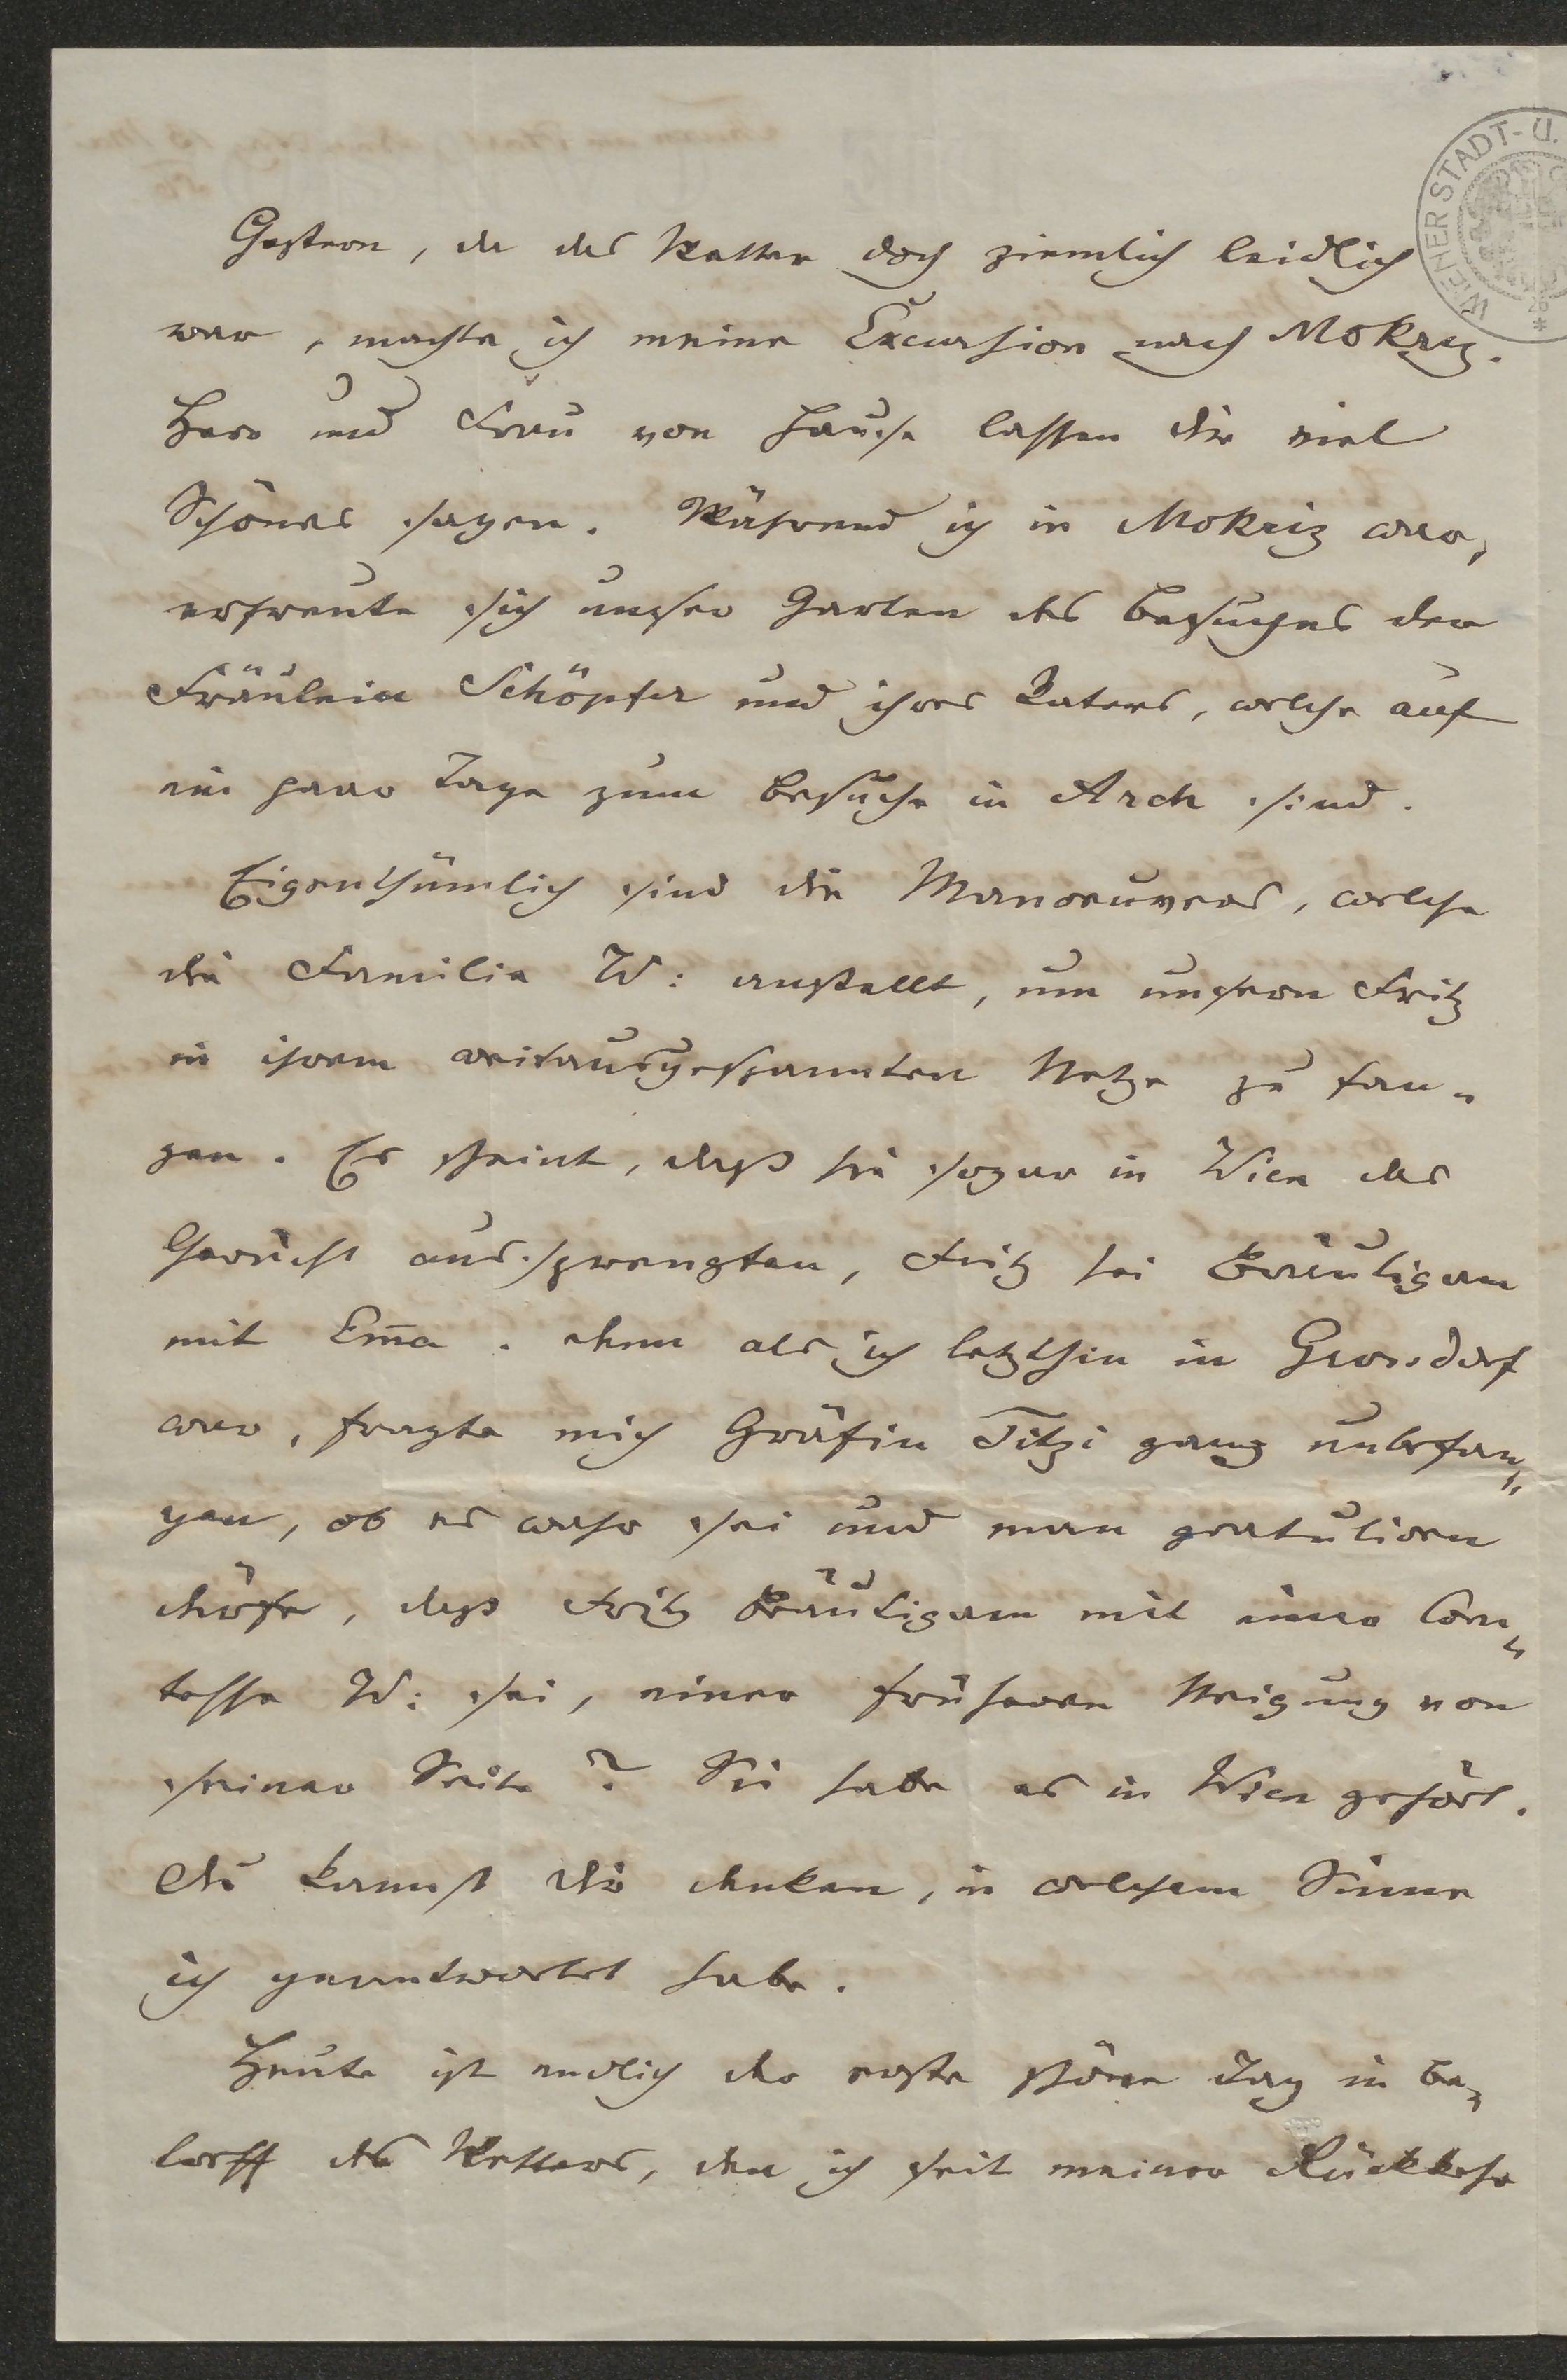 Gestern, da das Wetter doch ziemlich leidlich
war, machte ich meine Excursion nach Mokriz.
Herr und Frau vom Hause lassen dir viel
Schönes sagen. Während ich in Mokriz war,
erfreute sich unser Garten des Besuches der
Fräulein Schöpfer und ihres Vaters, welche auf
ein paar Tage zum Besuche in Arch sind.
Eigenthümlich sind die Manoeuvres, welche
die Familie W: anstellt, um unseren Fritz
in ihrem weitausgespannten Netze zu fan-
gen. Es scheint, daß sie sogar in Wien das
Gerücht aussprengten, Fritz sei Bräutigam
mit Em̄a. denn als ich letzthin in Grossdorf
war, fragte mich Gräfin Titzi ganz unbefan-
gen, ob es wahr sei und man gratuliren
dürfe, daß Fritz Bräutigam mit einer Com-
tesse W: sei, einer früheren Neigung von
seiner Seite? Sie habe es in Wien gehört.
Du kannst dir denken, in welchem Sinne
ich geantwortet habe.
Heute ist endlich der erste schöne Tag in Be-
treff des Wetters, den ich seit meiner Rückkehr
WIENER STADT- U.